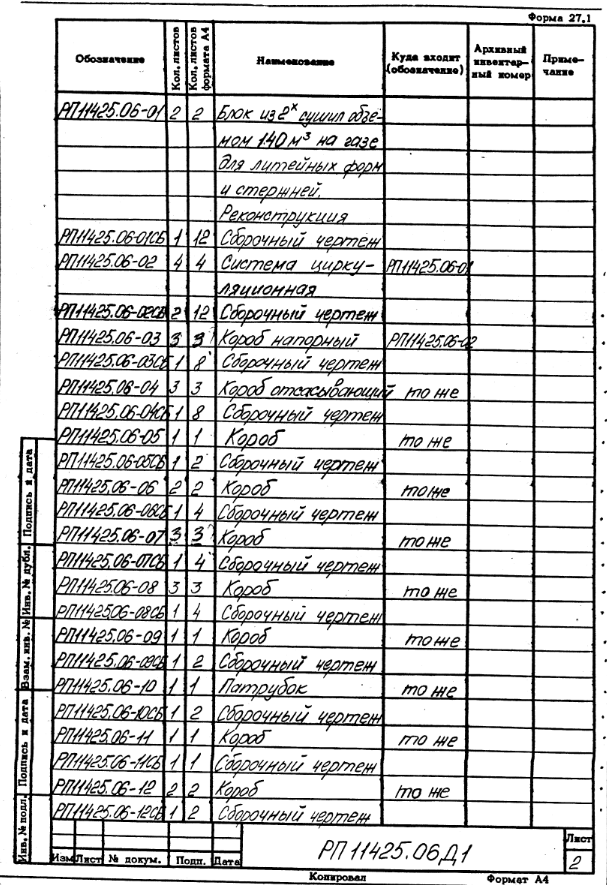 Форма 27.1
Обозначение Кол. листов Кол. листов формата А4 Наименование Куда входит (обозначение) Архивный инвентарный номер Примечание
РП11425.06-01 2 2 Блок из 2х сушил объё-
мом 140 м³ на газе
для литейных форм
и стержней.
Реконструкция
РП11425.06-01СБ 1 12 Сборочный чертеж
РП11425.06-02 4 4 Система цирку- РП11425.06-01
ляционная
РП11425.06-02СБ 2 12 Сборочный чертеж
РП11425.06-03 3 3 Короб напорный РП11425.06-02
РП11425.06-03СБ 1 8 Сборочный чертеж
РП11425.06-04 3 3 Короб отсасывающий то же
РП11425.06-04СБ 1 8 Сборочный чертеж
РП11425.06-05 1 1 Короб то же
РП11425.06-05СБ 1 2 Сборочный чертеж
РП11425.06-06 2 2 Короб то же
РП11425.06-06СБ 1 4 Сборочный чертеж
РП11425.06-07 3 3 Короб то же
РП11425.06-07СБ 1 4 Сборочный чертеж
РП11425.06-08 3 3 Короб то же
РП11425.06-08СБ 1 4 Сборочный чертеж
РП11425.06-09 1 1 Короб то же
РП11425.06-09СБ 1 2 Сборочный чертеж
РП11425.06-10 1 1 Патрубок то же
РП11425.06-10СБ 1 2 Сборочный чертеж
РП11425.06-11 1 1 Короб то же
РП11425.06-11СБ 1 1 Сборочный чертеж
РП11425.06-12 2 2 Короб то же
РП11425.06-12СБ 1 2 Сборочный чертеж
Подпись и дата
Инв. № дубл.
Взам. инв. №
Подпись и дата
Инв. № подл.
Изм Лист № докум. Подп. Дата
РП 11425.06Д1
Лист
2
Копировал Формат А4